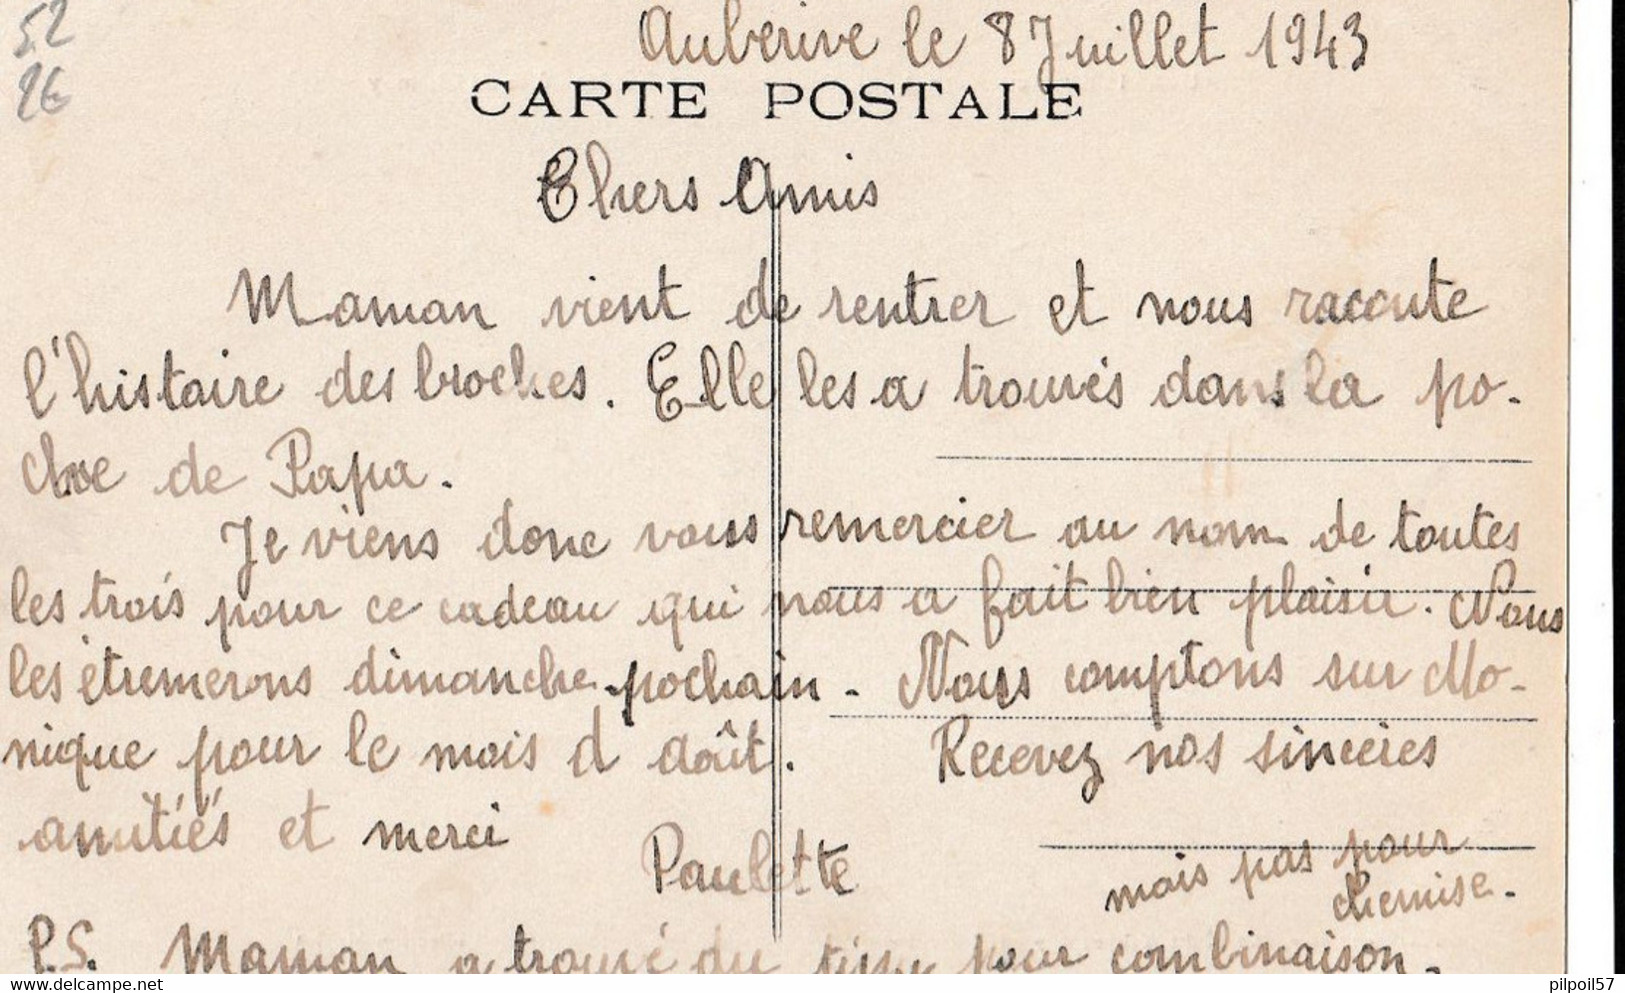 52
26
Auberive le 8 Juillet 1943
CARTE POSTALE
Chers Amis
Maman vient de rentrer et nous raconte
l'histoire des broches. Elle les a trouvés dans la po-
che de Papa.
Je viens donc vous remercier au nom de toutes
les trois pour ce cadeau qui nous a fait bien plaisir. Nous
les étrennerons dimanche pochain. Nous comptons sur Mo-
nique pour le mois d août. Recevez nos sincères
amitiés et merci
Paulette
mais pas pour
chemise.
P.S. Maman a trouvé du tissu pour combinaison.
delcampe.net
pilpoil57